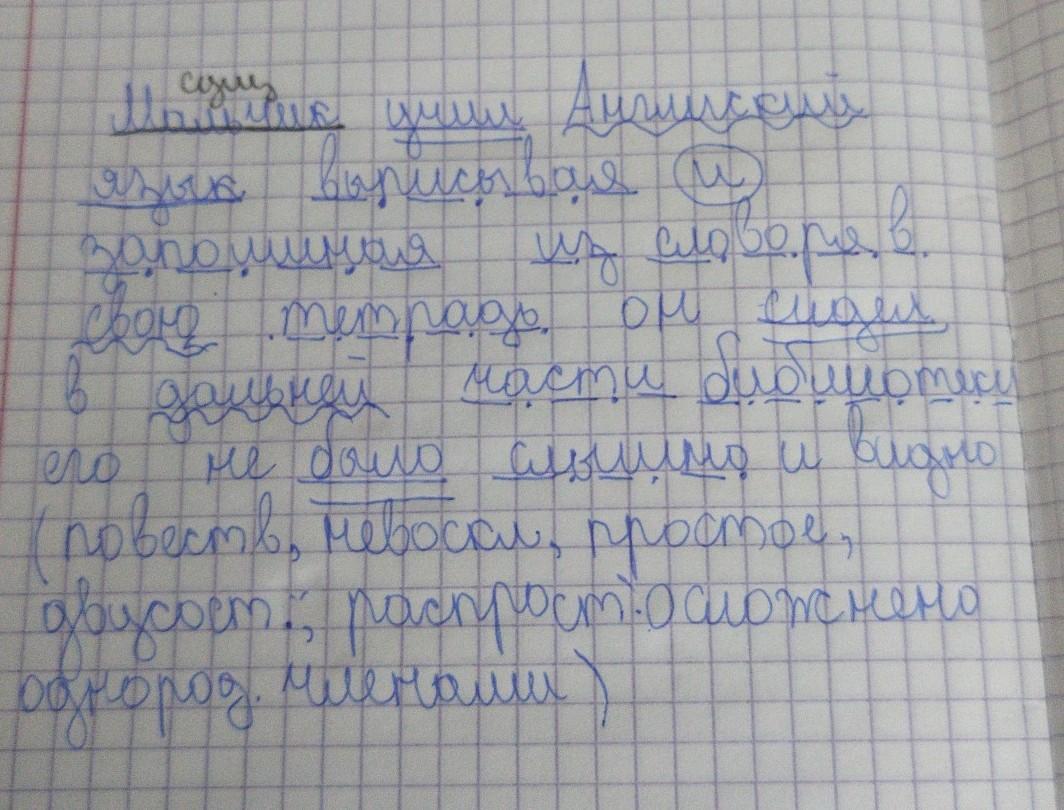 сущ
Мальчик учил Английский
язык выписывая и
запоминая из словаря в
свою тетрадь он сидел
в дальней части библиотеки
его не было слышно и видно
(повеств, невоскл, простое,
двусост., распрост. осложнено
однород. членами)